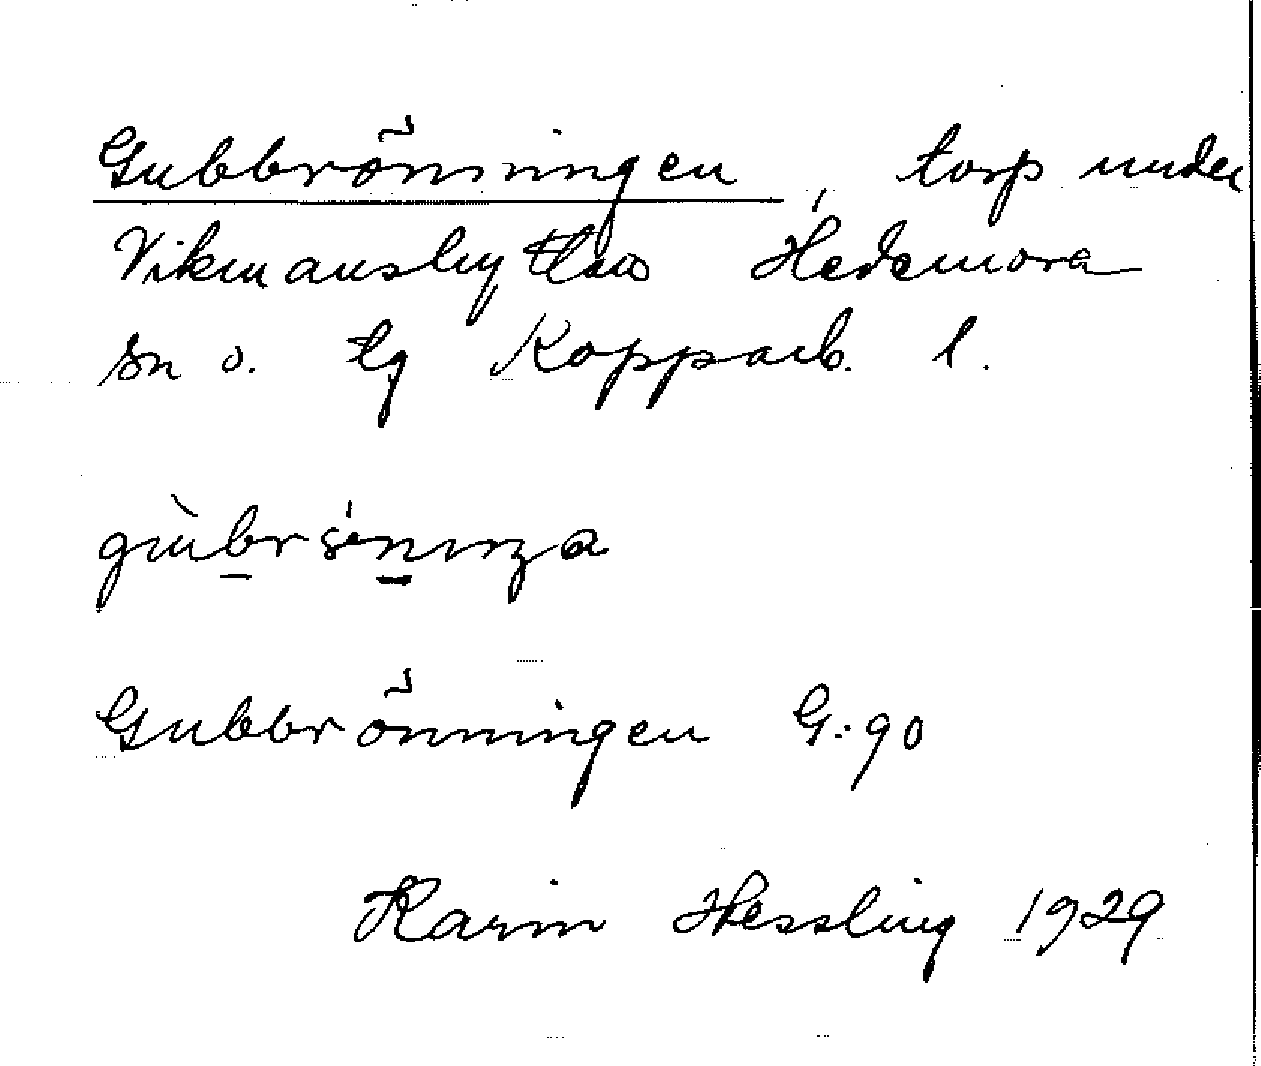 Gubbrönningen, torp under
Vikmanshyttan Hedemora
sn o. tg Kopparb. l.
Gubbrönningen G.90
Karin Hessling 1929